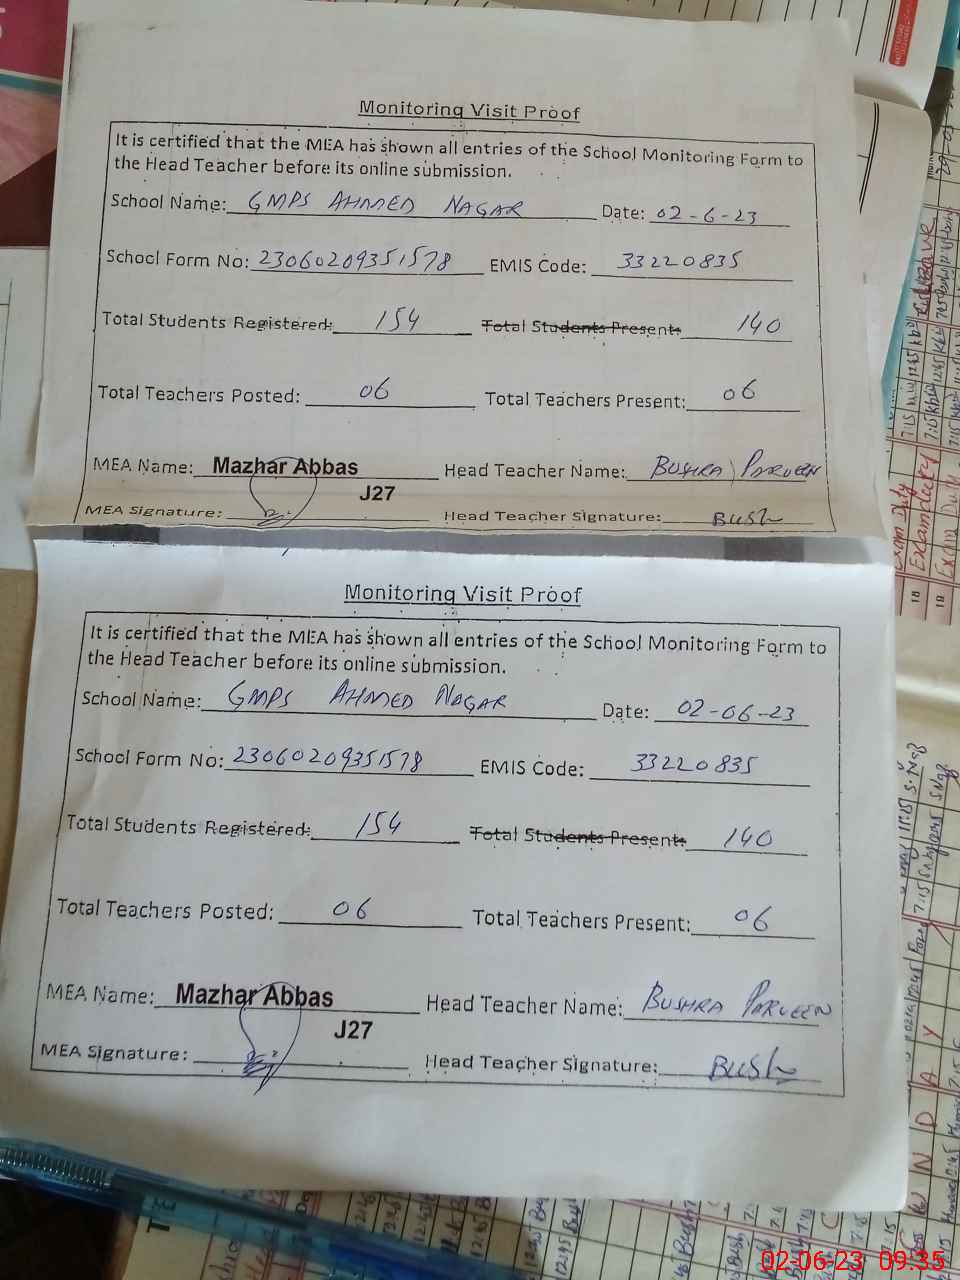 Monitoring Visit Proof
It is certified that the MEA has shown all entries of the School Monitoring Form to
the Head Teacher before its online submission.
School Name: GMPS AHMED NAGAR Date: 02-6-23
School Form No: 23060209351578 EMIS Code: 33220835
Total Students Registered: 154 Total Students Present: 140
Total Teachers Posted: 06 Total Teachers Present: 06
MEA Name: Mazhar Abbas Head Teacher Name: BUSHRA PARVEEN
J27
MEA Signature: Head Teacher Signature: Bush
Monitoring Visit Proof
It is certified that the MEA has shown all entries of the School Monitoring Form to
the Head Teacher before its online submission.
School Name: GMPS AHMED NAGAR Date: 02-06-23
School Form No: 23060209351578 EMIS Code: 33220835
Total Students Registered: 154 Total Students Present: 140
Total Teachers Posted: 06 Total Teachers Present: 06
MEA Name: Mazhar Abbas Head Teacher Name: BUSHRA PARVEEN
J27
MEA Signature: Head Teacher Signature: Bush
Exam Duty
18
18
02-06-23 09:35